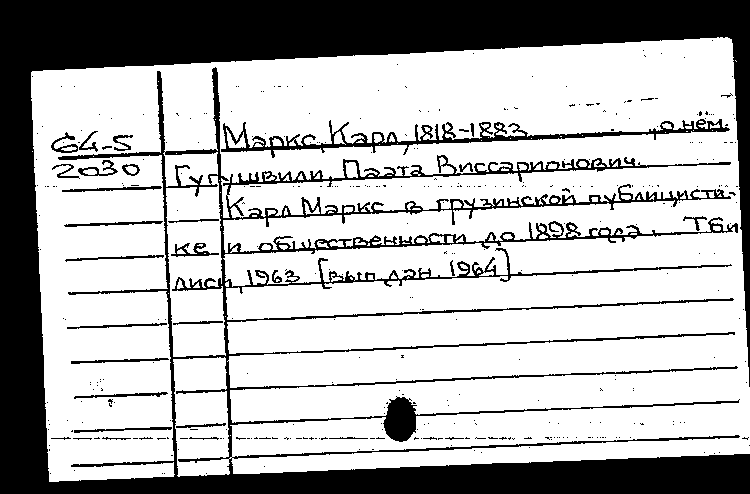 64-5
2030
Маркс, Карл, 1818-1883 о нём.
Гугушвили, Паата Виссарионович.
Карл Маркс в грузинской публицисти-
ке и общественности до 1898 года. Тби
лиси, 1963 [вып дан. 1964].